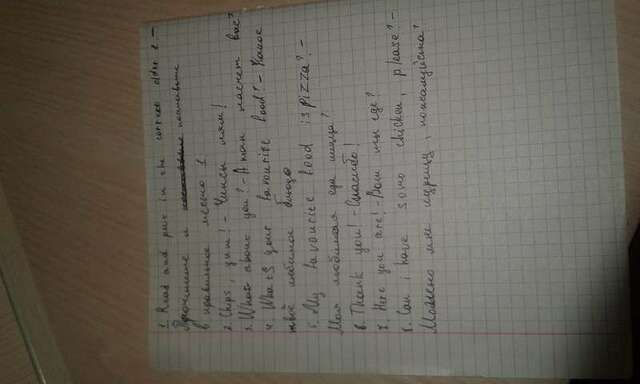 1. Read and put in the correct order 1 -
Прочитайте и поставьте
в правильное место 1.
2. Chips, yum! - Чипсы ням!
3. What about you? - А как насчет вас?
4. What's your favourite food? - Какое
твоё любимое блюдо
5. My favourite food is pizza? -
Моя любимая еда пицца?
6. Thank you! - Спасибо!
7. Here you are! - Вот ты где?
8. Can i have some chicken, please? -
Можно мне курицу, пожалуйста?